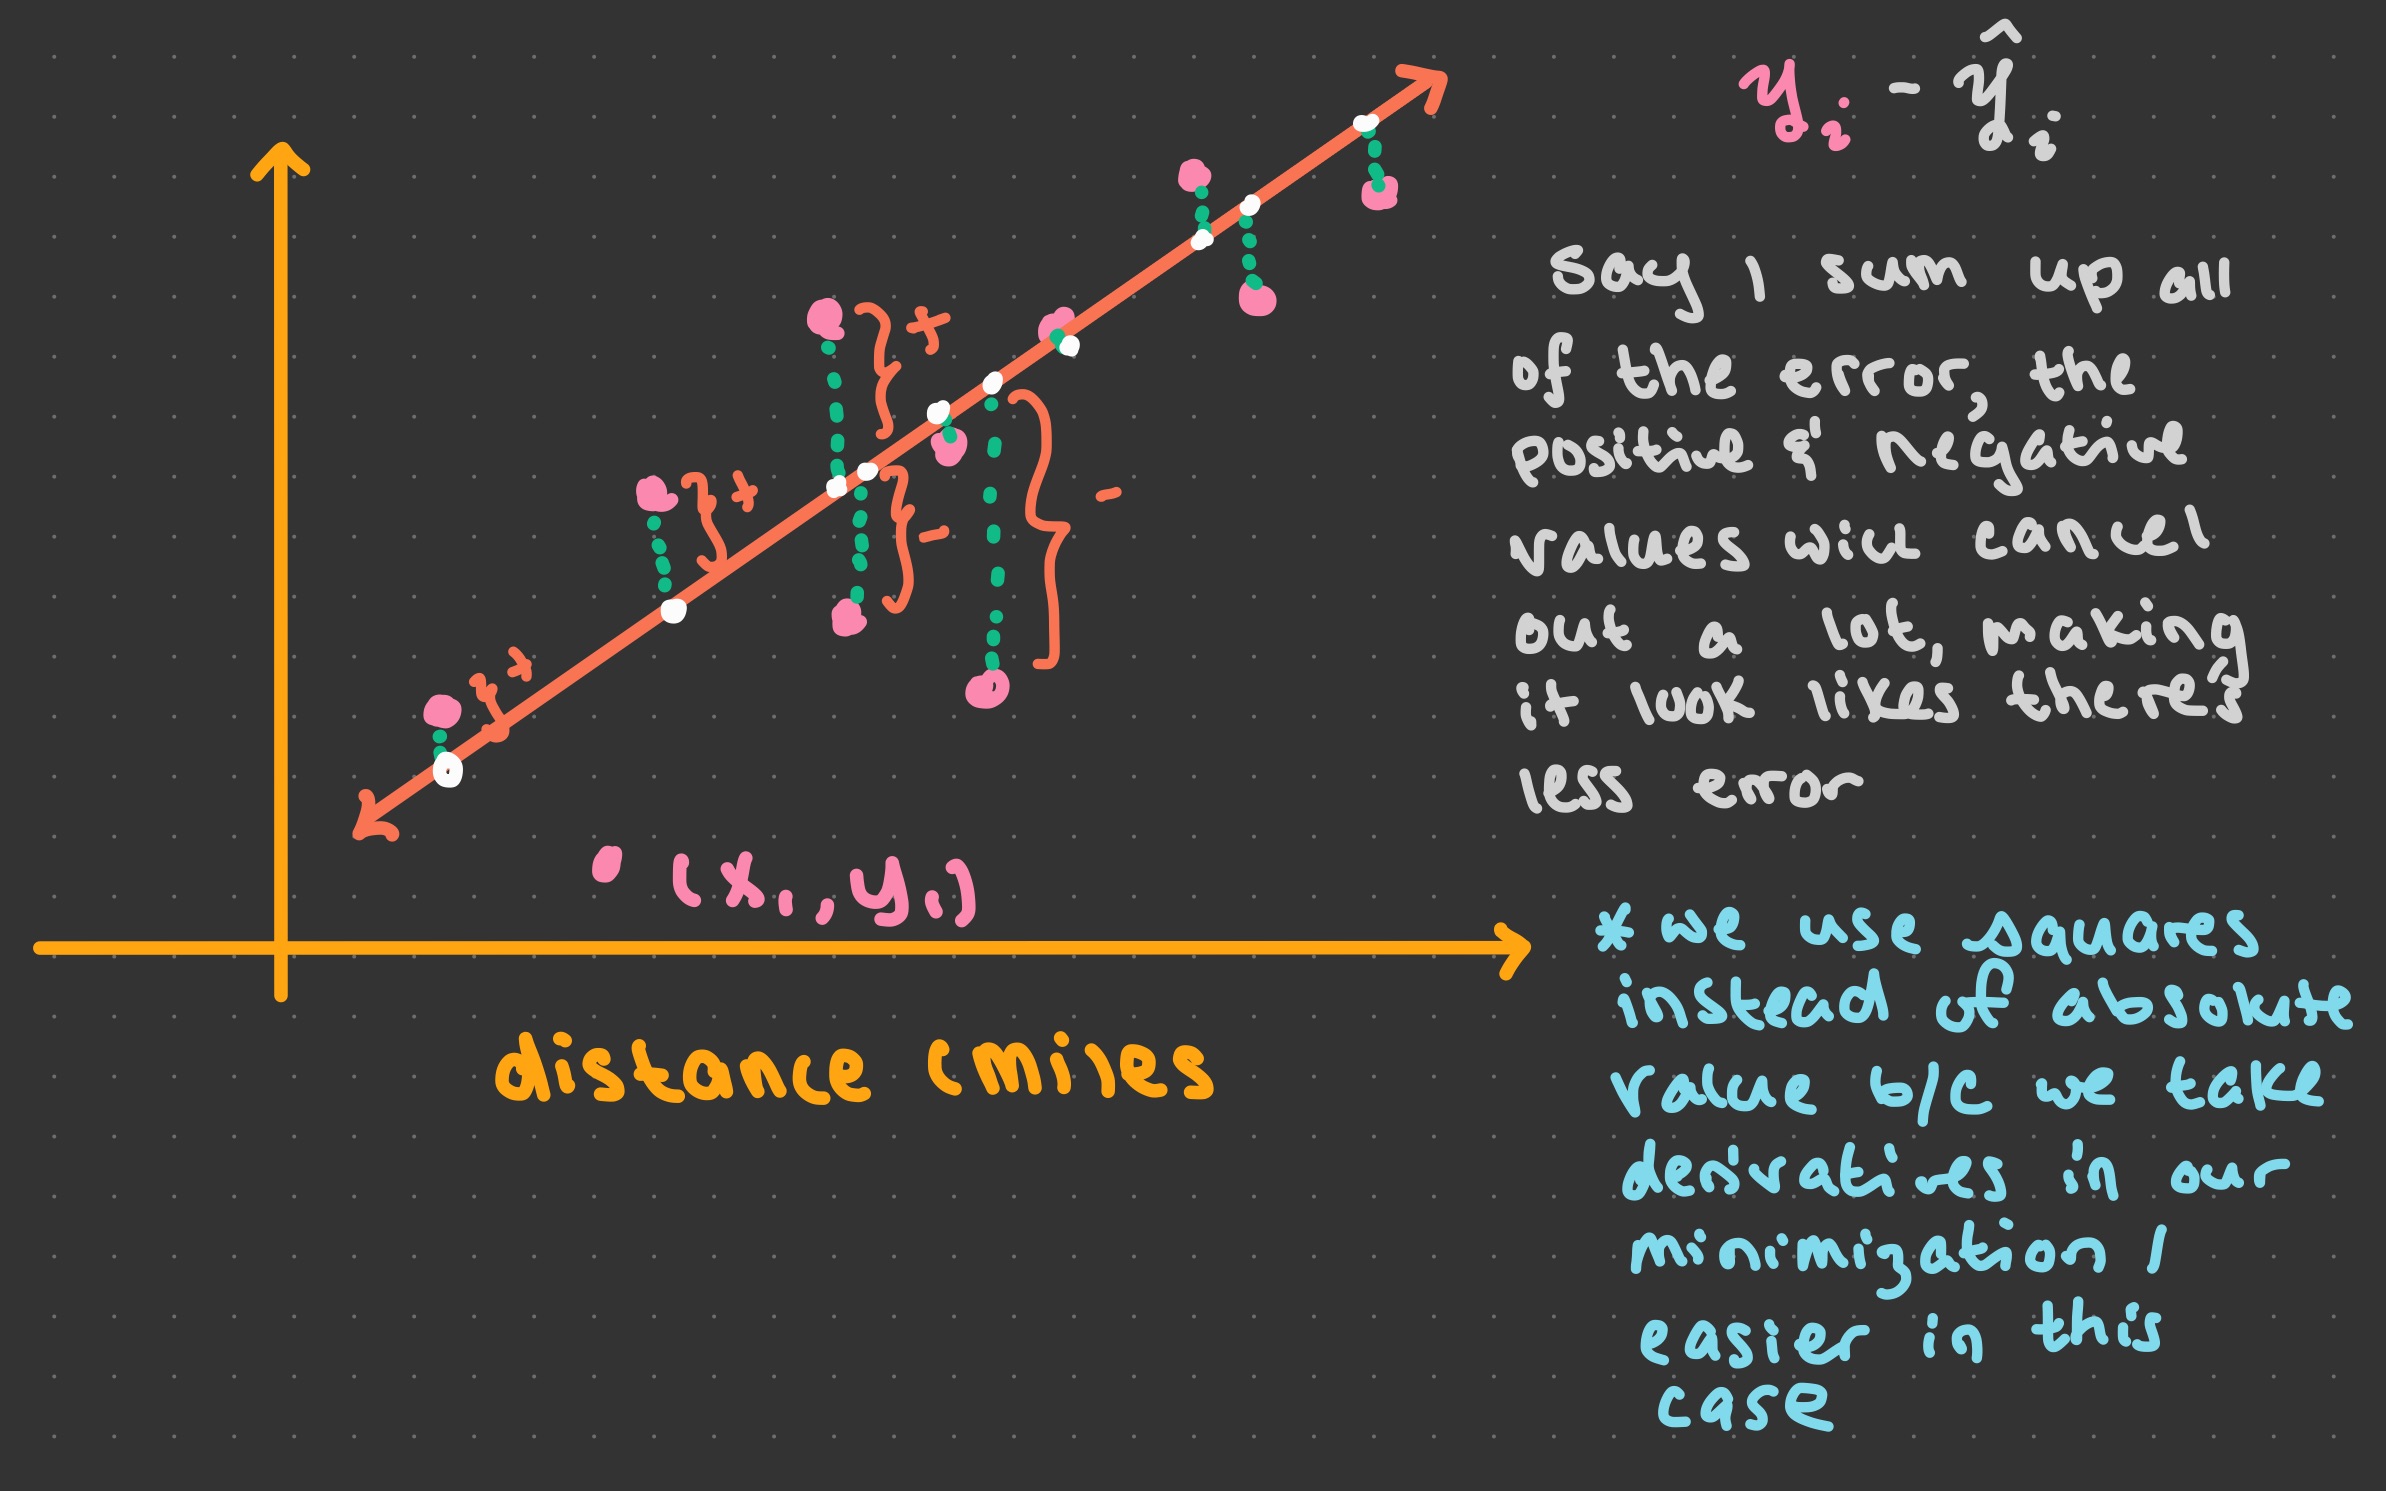 yᵢ - ŷᵢ
Say I sum up all
of the error, the
positive & negative
values will cancel
out a lot, making
it look likes there's
less error
+
+
+
-
-
(xᵢ, yᵢ)
* we use squares
instead of absolute
value b/c we take
derivatives in our
minimization /
easier in this
case
distance (miles